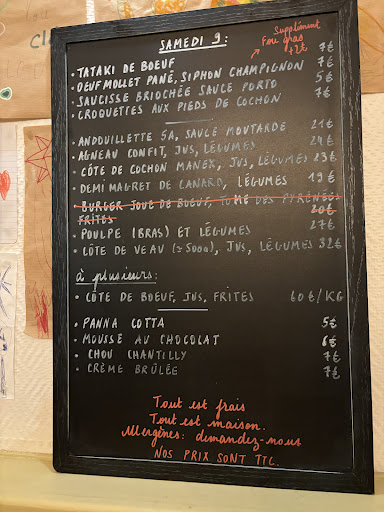 SAMEDI 9:
Supplément
Foie gras
+2€
• TATAKI DE BOEUF 7€
• OEUF MOLLET PANÉ, SIPHON CHAMPIGNON 7€
• SAUCISSE BRIOCHÉE SAUCE PORTO 5€
• CROQUETTES AUX PIEDS DE COCHON 7€
• ANDOUILLETTE 5A, SAUCE MOUTARDE 21€
• AGNEAU CONFIT, JUS, LÉGUMES 24€
• CÔTE DE COCHON MANEX, JUS, LÉGUMES 23€
• DEMI MAGRET DE CANARD, LÉGUMES 19€
• BURGER JOUE DE BOEUF, TOME DES PYRÉNÉES
FRITES 20€
• POULPE (BRAS) ET LÉGUMES 27€
• CÔTE DE VEAU (≈500g), JUS, LÉGUMES 32€
à plusieurs:
• CÔTE DE BOEUF, JUS, FRITES 60€/KG
• PANNA COTTA 5€
• MOUSSE AU CHOCOLAT 6€
• CHOU CHANTILLY 7€
• CRÈME BRÛLÉE 7€
Tout est frais
Tout est maison.
Allergènes: demandez-nous
NOS PRIX SONT TTC.